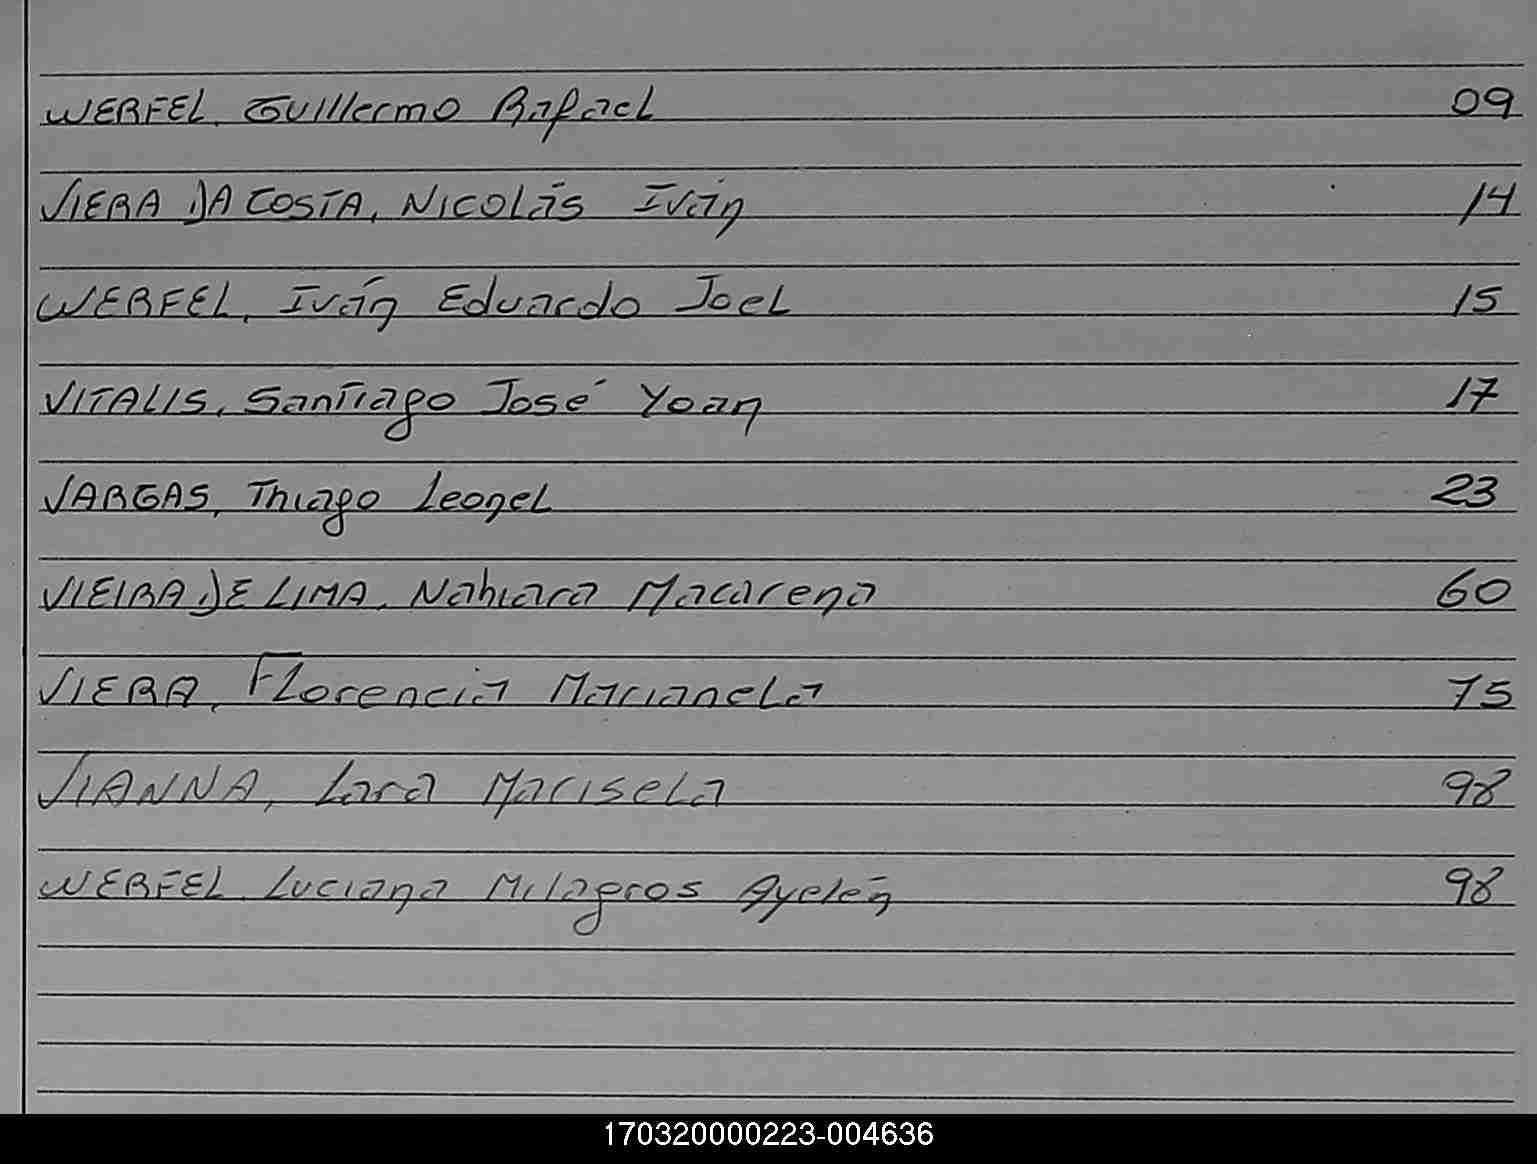 WERFEL, Guillermo Rafael 09
VIERA DA COSTA, Nicolás Iván 14
WERFEL, Iván Eduardo Joel 15
VITALIS, Santiago José Yoan 17
VARGAS, Thiago Leonel 23
VIEIRA DE LIMA, Nahiara Macarena 60
VIERA, Florencia Marianela 75
VIANNA, Lara Marisela 98
WERFEL, Luciana Milagros Ayelén 98
170320000223-004636